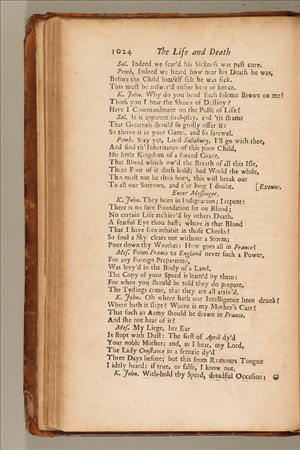 1024 The Life and Death
Sal. Indeed we fear'd his Sickness was past cure.
Pemb. Indeed we heard how near his Death he was,
Before the Child himself felt he was sick.
This must be answer'd either here or hence.
K. John. Why do you bend such solemn Brows on me?
Think you I bear the Shears of Destiny?
Have I Commandment on the Pulse of Life?
Sal. It is apparent foul-play, and 'tis shame
That Greatness should so grosly offer it:
So thrive it in your Game, and so farewel.
Pemb. Stay yet, Lord Salisbury, I'll go with thee,
And find th' Inheritance of this poor Child,
His little Kingdom of a forced Grave.
That Blood which ow'd the Breath of all this Isle,
Three Foot of it doth hold; bad World the while,
This must not be thus born, this will break out
To all our Sorrows, and e'er long I doubt. [Exeunt.
Enter Messenger.
K. John. They burn in Indignation; I repent:
There is no sure Foundation set on Blood;
No certain Life atchiev'd by others Death.
A fearful Eye thou hast; where is that Blood
That I have seen inhabit in those Cheeks?
So foul a Sky clears not without a Storm;
Pour down thy Weather: How goes all in France?
Mes. From France to England never such a Power,
For any Foreign Preparation,
Was levy'd in the Body of a Land.
The Copy of your Speed is learn'd by them:
For when you should be told they do prepare,
The Tydings come, that they are all arriv'd.
K. John. Oh where hath our Intelligence been drunk?
Where hath it slept? Where is my Mother's Care?
That such an Army should be drawn in France,
And she not hear of it?
Mes. My Liege, her Ear
Is stopt with Dust: The first of April dy'd
Your noble Mother; and, as I hear, my Lord,
The Lady Constance in a frenzie dy'd
Three Days before; but this from Rumours Tongue
I idely heard: if true, or false, I know not.
K. John. With-hold thy Speed, dreadful Occasion;